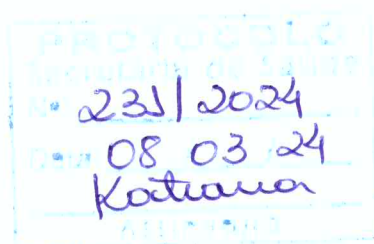 PROTOCOLO
Secretaria de Saúde
Nº 231/2024
Data 08 03 24
Katiana